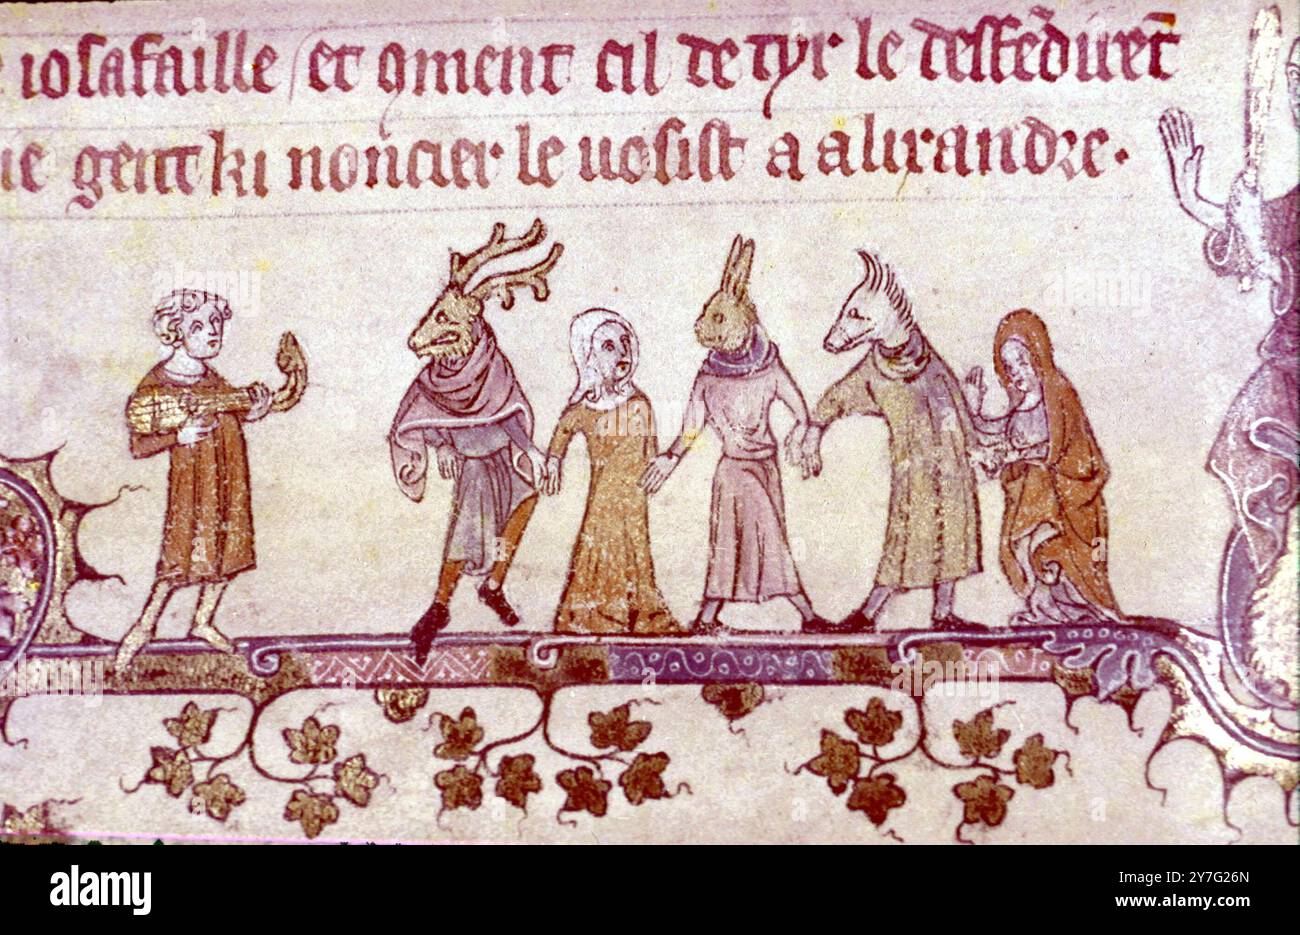 iosafaille / et ꝯment cil de tyr le desfēdirēt
gent ki noncier le uosist a alixandre.
a
alamy
alamy
Image ID: 2Y7G26N
www.alamy.com